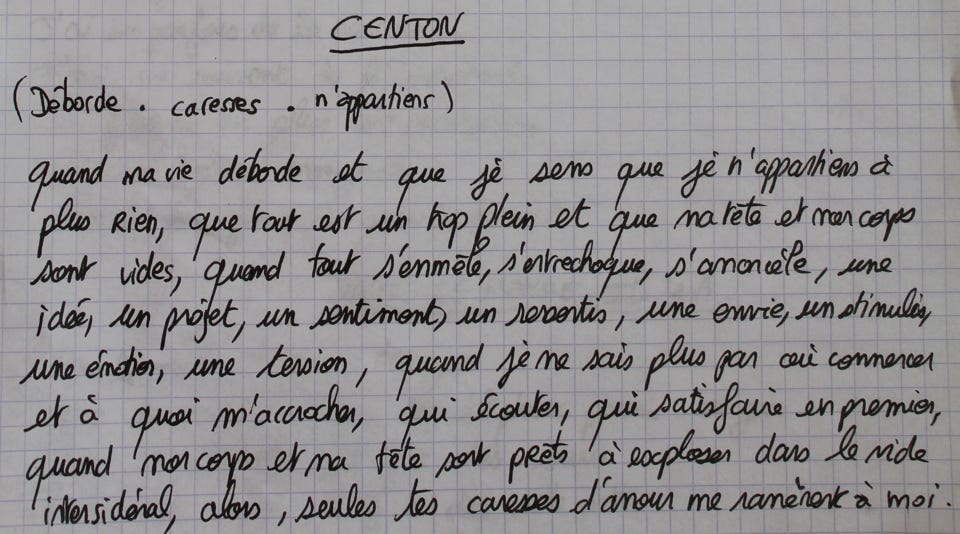 CENTON
(Déborde . caresses . n'appartiens)
quand ma vie déborde et que je sens que je n'appartiens à
plus rien, que tout est un trop plein et que ma tête et mon corps
sont vides, quand tout s'enmêle, s'entrechoque, s'amoncèle, une
idée, un projet, un sentiment, un ressentis, une envie, un stimulis,
une émotion, une tension, quand je ne sais plus par où commencer
et à quoi m'accrocher, qui écouter, qui satisfaire en premier,
quand mon corps et ma tête sont prêts à exploser dans le vide
intersidéral, alors, seules tes caresses d'amour me ramènent à moi.